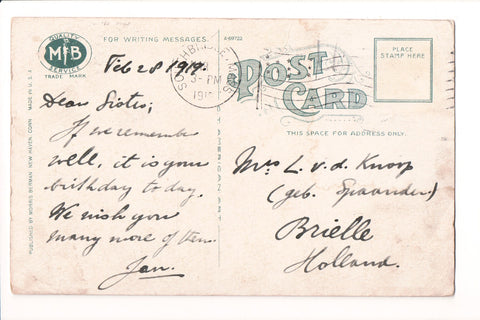 QUALITY
M B
SERVICE
TRADE MARK
FOR WRITING MESSAGES.
A-69722
PLACE
STAMP HERE
POST
CARD
THIS SPACE FOR ADDRESS ONLY.
3-PM
191
MADE IN U.S.A.
PUBLISHED BY MORRIS BERMAN, NEW HAVEN, CONN.
Feb 28 1919.
Dear Sister;
If we remember
well, it is your
birthday to day.
We wish you
many more of them.
Jan.
Mrs L. v. d. Knoop
(geb. Spaander)
Brielle
Holland.